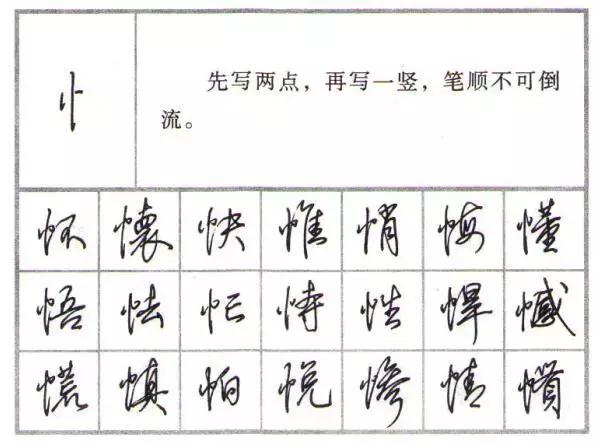 忄
先写两点，再写一竖，笔顺不可倒
流。
怀 懷 快 惟 悄 悔 懂
悟 怯 忙 恃 性 悍 憾
慌 慎 怕 悦 惨 情 愤